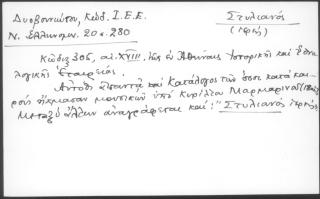 Δυοβουνιώτου, Κώδ. Ι.Ε.Ε.
Στυλιανός
Ν. Ἑλληνομν. 20 σ. 280
(ἱερεύς)
Κῶδιξ 305, αἰ. XVIII, τῆς ἐν Ἀθήναις Ἱστορικῆς καὶ Ἐθνο
λογικῆς Ἑταιρείας.
Αὐτόθι Κατάλογος τῶν ὅσοι κατὰ και
ροὺς ἤκμασαν μουσικῶν ὑπὸ Κυρίλλου Μαρμαρινοῦ
Μεταξὺ ἄλλων ἀναγράφεται καί: "Στυλιανὸς ἱερεύς